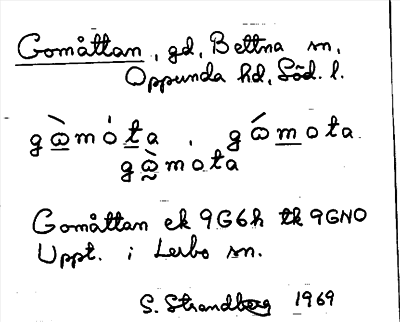 Gomåttan, gd, Bettna sn,
Oppunda hd, Söd. l.
gòmóta, gómota
gòmota
Gomåttan ek 9G6h tk 9GNO
Uppt. i Lerbo sn.
S. Strandberg 1969